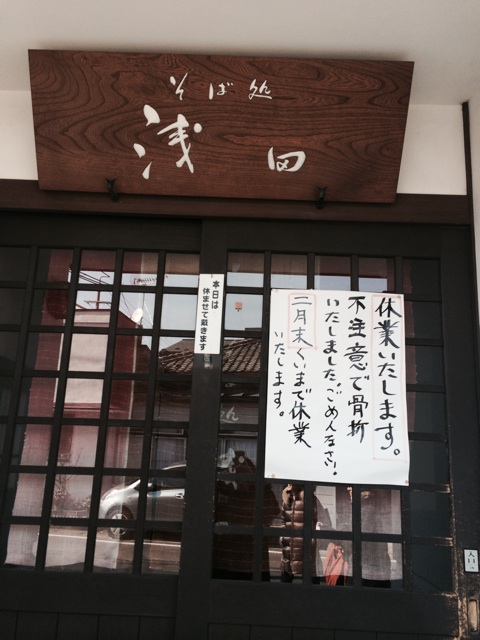 そば処
浅田
本日は
休ませて戴きます
休業いたします。
不注意で骨折
いたしました。ごめんなさい。
二月末くいまで休業
いたします。
入口